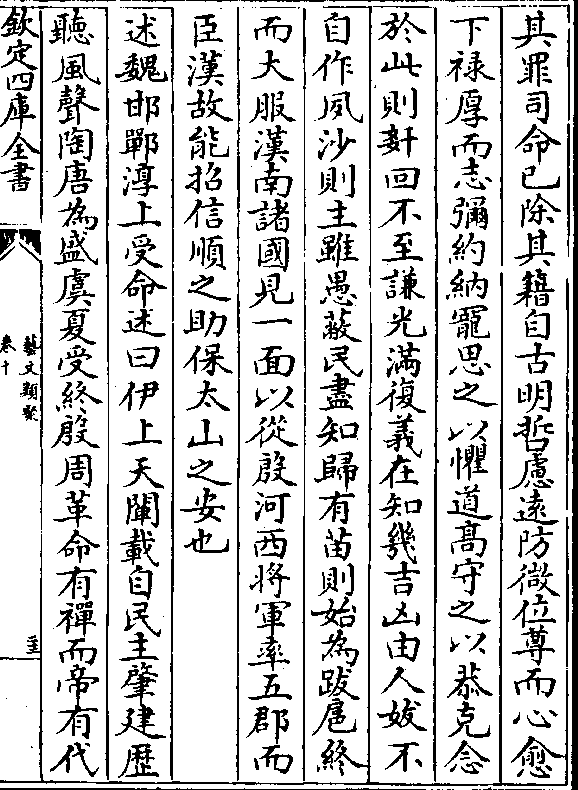 其罪司命已除其籍自古明哲慮遠防微位尊而心愈
下禄厚而志彌約納寵思之以懼道髙守之以恭克念
於此則姧回不至謙光滿復義在知幾吉凶由人妭不
自作夙沙則主雖愚蔽民盡知歸有苗則始為跋扈終
而大服漢南諸國見一面以從殷河西將軍率五郡而
臣漢故能招信順之助保太山之安也
述魏邯鄲淳上受命述曰伊上天闡載自民主肇建歴
聽風聲陶唐為盛虞夏受終殷周革命有禪而帝有代
欽定四庫全書
藝文類聚
卷十